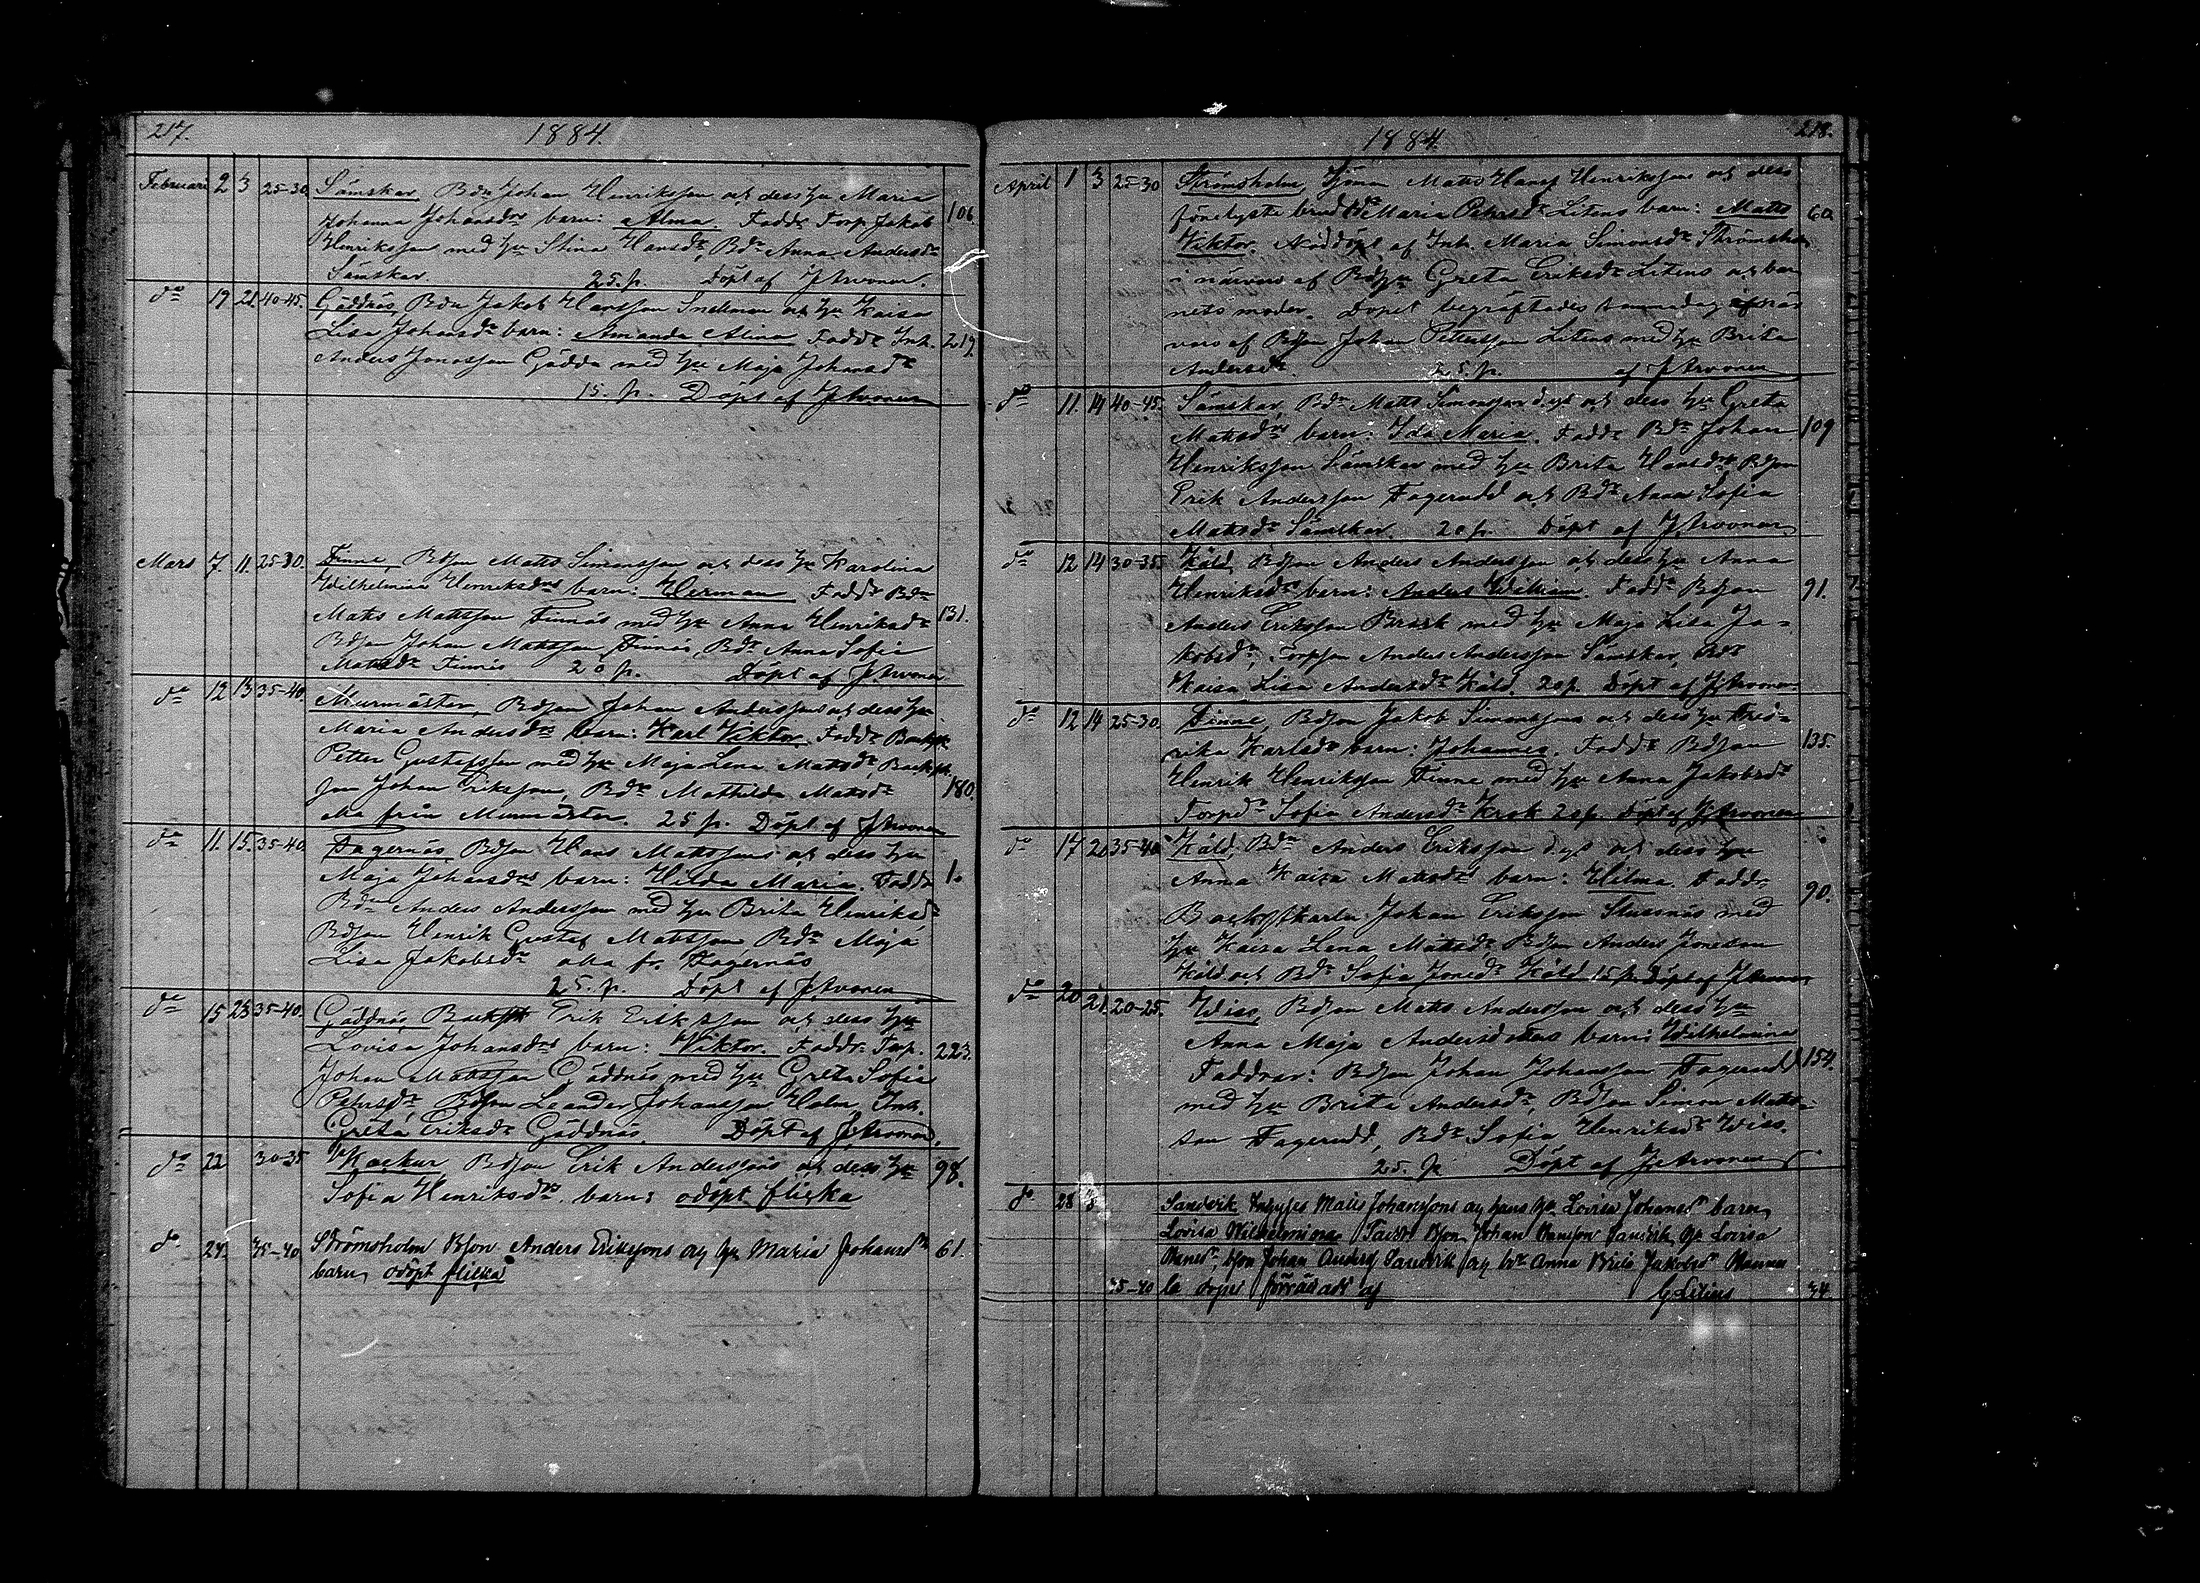 217.
1884.
Februari 2 3 25-30 Sämskar, Bdn Johan Henriksson och dess hu Maria
Johanna Johansdrs barn: Alma. Faddr Torp. Jakob 106
Henriksson med hu Stina Hansdr, Bdr Anna Andersdr
Sämskar 25. p. Döpt af J. Arvonen.
do 19 21 40-45. Gäddnäs, Bdn Jakob Hansson Snellman och hu Kaisa
Lisa Johansdr barn: Amanda Alina Faddr Inh. 219
Anders Jonasson Gädda med hu Maja Johansdr
15. p. Döpt af J Arvonen
Mars 7. 11. 25-30. Finne, Bdson Matts Simonsson och dess hu Karolina
Wilhelmina Henriksdrs barn: Herman Faddr Bdn
Matts Mattsson Finnäs med hu Anna Henriksdr 131.
Bdson Johan Mattsson Finnäs, Bdr Anna Sofia
Mattsdr Finnäs 20 p. Döpt af J Arvonen
do 12 13 35-40. Murmäster, Bdson Johan Anderssons och dess hu
Maria Andersdrs barn: Karl Viktor. Faddr
Petter Gustafsson med hu Maja Lena Mattsdr,
son Johan Eriksson, Bdr Mathilda Mattsdr 180.
alla från Murmäster. 25 p. Döpt af J Arvonen
do 11. 15. 35-40. Fagernäs, Bdson Hans Mattssons och dess hu
Maja Johansdrs barn: Hilda Maria. Faddr 1.
Bdn Anders Andersson med hu Brita Henriksdr
Bdson Henrik Gustaf Mattsson Bdr Maja
Lisa Jakobsdr alla fr. Fagernäs
25. p. Döpt af J Arvonen
do 15 23 35-40. Gäddnäs, Erik Eriksson och dess hu
Lovisa Johansdrs barn: Viktor. Faddr. Torp. 223.
Johan Mattsson Gäddnäs med hu Greta Sofia
Petersdr Bdson Leander Johansson Holm, Inh.
Greta Eriksdr Gäddnäs. Döpt af J Arvonen.
do 22 30-35 Bdson Erik Anderssons och dess hu 98.
Sofia Henriksdrs barn: odöpt flicka
do. 24. 35-40 Strömsholm Bson Anders Erikssons og hu Maria Johansdrs 61.
barn, odöpt flicka
218.
1884.
April 1 3 25-30 Strömsholm, Matts Hans Henrikssons och dess
Maria Petersdr Litens barn: Matts 60.
Viktor. Nöddöpt af Inh. Maria Simonsdr Strömsholm
i närvaro af Bdhu Greta Eriksdr Litens och bar
nets moder. Dopet bekräftades samma dag i när
varo af Bdson Johan Pettersson Litens med hu Brita
Andersdr. 25. p. af J Arvonen
do 11. 14 40-45. Sämskar, Bdn Matts Simonsson d.y:s och dess hu Greta
Mattsdrs barn: Ida Maria. Faddr Bdn Johan 109
Henriksson Sämskar med hu Brita Hansdr Bdson
Erik Andersson Fagerudd och Bdr Anna Sofia
Mattsdr Sämskar. 20 p. Döpt af J Arvonen
do 12 14 30-35. Käld, Bdson Anders Andersson och dess hu Anna
Henriksdrs barn: Anders William. Faddr Bdson 91.
Anders Eriksson Brask med hu Maja Lisa Ja-
kobsdr, Torpson Anders Andersson Sämskar, Bdr
Kaisa Lisa Andersdr Käld. 20 p. Döpt af J Arvonen
do 12 14 25-30. Finne, Bdson Jakob Simonssons och dess hu Fred-
rika Karlsdrs barn: Johannes. Faddr Bdson 135.
Henrik Henriksson Finne med hu Anna Jakobsdr
Torpdr Sofia Andersdr Krok 20 p. Döpt af J Arvonen
do 17 20 35-40 Käld, Bdn Anders Eriksson d.y:s och dess hu
Anna Kaisa Mattsdrs barn: Hilma. Faddr 90.
Johan Eriksson Stussnäs med
hu Kaisa Lena Mattsdr, Bdson Anders Jonsson
Käld och Bdr Sofia Jonsdr Käld 15 p. Döpt af J Arvonen
do 20 21 20-25. Wiss, Bdson Matts Andersson och dess hu
Anna Maja Andersdotters barn: Wilhelmina
Faddrar: Bdson Johan Johansson Fagerudd 154.
med hu Brita Andersdr, Bdson Simon Matts-
son Fagerudd, Bdr Sofia Henriksdr Wiss.
25. p Döpt af J. Arvonen
do 28 Sandvik Matts Johanssons og hans hu Lovisa Johansdrs barn,
Lovisa Wilhelmina Faddr Bson Johan Hansson Sandvik hu Lovisa
Hansdr, bson Johan Anders Sandvik og bdr Anna Brita Jakobsdr
35-40 la dopet förrättadt af G Litius 34.